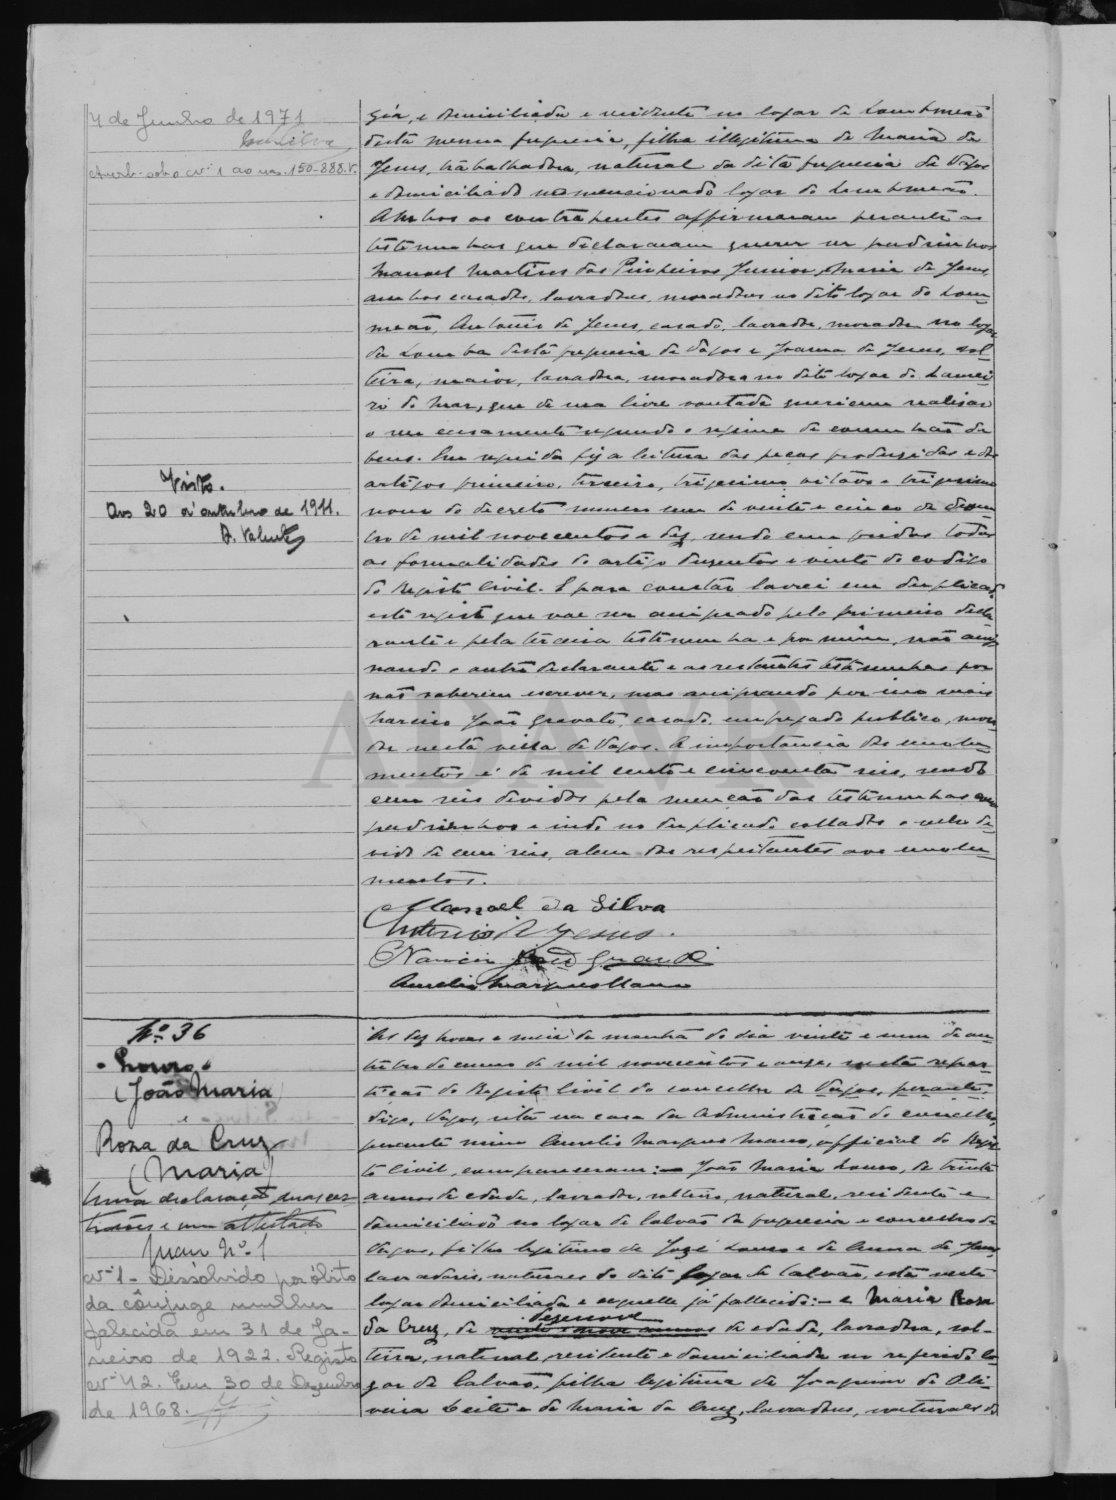 4 de Junho de 1971
Silva
Averb. sob o nº 1 ao nº 150-888.V.
Visto.
Aos 20 d'outubro de 1911.
A. Valente
gia, e domiciliada e residente no logar do Lombomeão
desta mesma freguesia, filha illegitima de Maria de
Jesus, trabalhadora, natural da dita freguesia de Vagos
e domiciliada no mencionado logar do Lombomeão.
Ambos os contrahentes affirmaram perante as
testemunhas que declararam querer ser padrinhos
Manoel Martins dos Pinheiros Junior, Maria de Jesus,
ambos casados, lavradores, moradores no dito logar do Lom-
meão, Antonio de Jesus, casado, lavrador, morador no logar
da Lomba desta freguesia de Vagos e Joanna de Jesus, sol-
teira, maior, lavradora, moradora no dito logar do Lamei-
ro do Mar, que de sua livre vontade queriam realisar
o seu casamento segundo o regime de communhão de
bens. Em seguida fiz a leitura das peças produzidas e dos
artigos primeiro, terceiro, trigesimo oitavo e trigesimo
nono do decreto numero um de vinte e cinco de dezem-
bro de mil novecentos e dez, sendo cumpridas todas
as formalidades do artigo duzentos e vinte do codigo
do Registo Civil. E para constar lavrei em duplicado
este registo que vae ser assignado pelo primeiro decla-
rante e pela terceira testemunha e por mim, não assig-
nando o outro declarante e as restantes testemunhas por
não saberem escrever, mas assignando por
João Gravato, casado, empregado publico, mora-
dor nesta villa de Vagos. A importancia dos emolu-
mentos é de mil cento e cincoenta reis, sendo
cem reis devidos pela menção das testemunhas como
padrinhos e indo no duplicado collados o sello de-
vido de cem reis, alem dos respeitantes aos emolu-
mentos.
Manoel da Silva
Antonio de Jesus.
João Grande
Aurelio Marques Mano
Nº 36
Louro
(João Maria)
e
Roza da Cruz
(Maria)
Uma declaração, duas cer-
tidões e um attestado
Juan Nº 1
nº 1 - Dissolvido por óbito
da cônjuge mulher
falecida em 31 de Ja-
neiro de 1922. Registo
nº 42. Em 30 de Dezembro
de 1968.
Ás dez horas e meia da manhã do dia vinte e um de ou-
tubro do anno de mil novecentos e onze, nesta repar-
tição do Registo Civil do concelho de Vagos, perante,
digo, Vagos, sita na casa da Administração do concelho,
perante mim Aurelio Marques Mano, official do Regis-
to Civil, compareceram: - João Maria Louro, de trinta
annos de edade, lavrador, solteiro, natural, residente e
domiciliado no logar de Calvão da freguesia e concelho de
Vagos, filho legitimo de José Louro e de Anna de Jesus,
lavradores, naturaes do dito logar de Calvão, esta neste
logar domiciliada e aquelle já fallecido: - e Maria Rosa
dezenove
da Cruz, de vinte e nove annos de edade, lavradora, sol-
teira, natural, residente e domiciliada no referido lo-
gar de Calvão, filha legitima de Joaquim de Oli-
veira Leite e de Maria da Cruz, lavradores, naturaes do
ADAVR